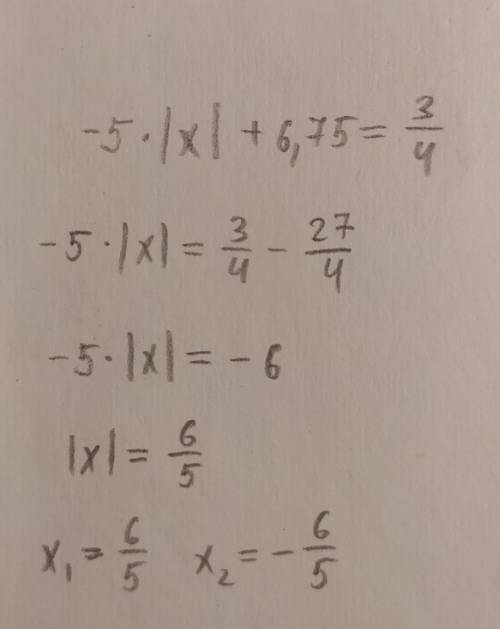 -5·|x| + 6,75 = 3/4
-5·|x| = 3/4 - 27/4
-5·|x| = -6
|x| = 6/5
x₁ = 6/5 x₂ = -6/5